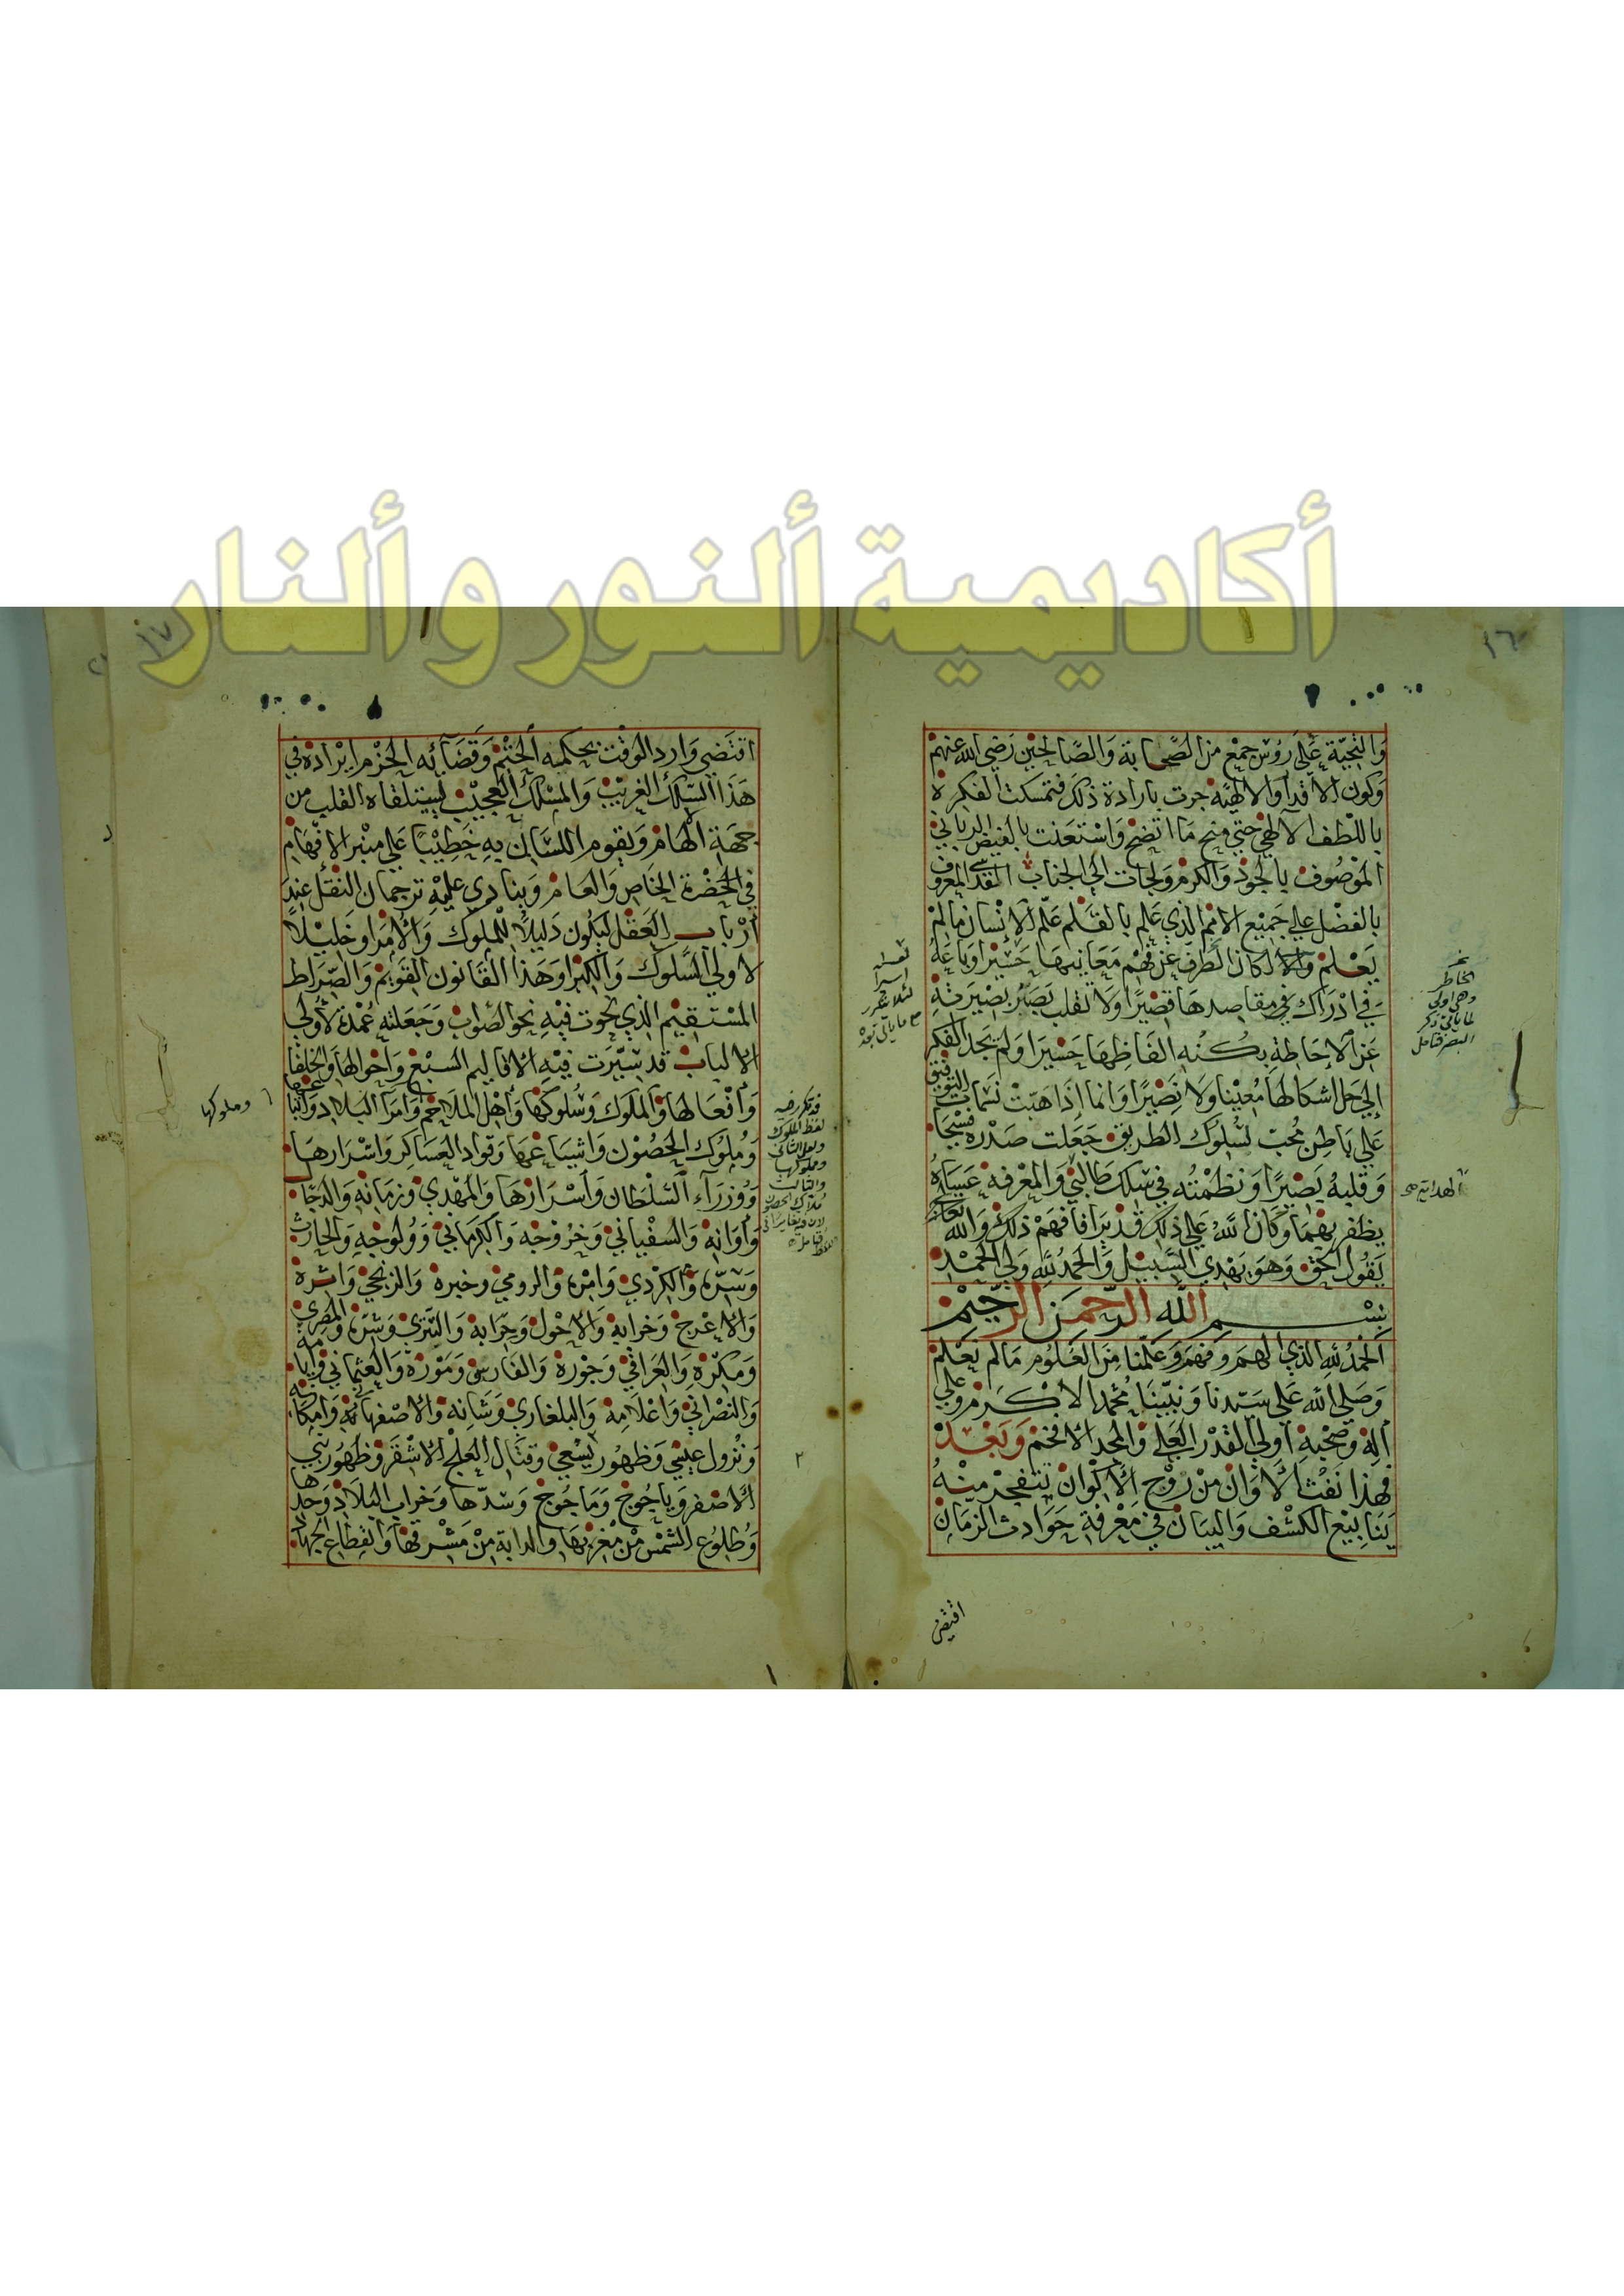 أكاديمية ألنور وألنار
١٦
والتحية على رؤس جمع من الصحابة والصالحين رضي الله عنهم
وكون الاقدار الالهية جرت بارادة ذلك فتمسكت الفكرة
باللطف الالهي حتى منح ما اتضح واستعنت بالفيض الرباني
الموصوف بالجود والكرم ولجات الى الجناب المقدس المعروف
بالفضل على جميع الامم الذي علم بالقلم علم الانسان مالم
يعلم والا لكان الطرف عن فهم معانيها حسيرا وباعه
في ادراك مقاصدها قصيرا ولا تقلب بصر بصيرته
عن الاحاطة بكنه الفاظها حسيرا ولم يجد الفكر
الى حل اشكالها معينا ولا نصيرا وانما اذا هبت نسمات التوفيق
على باطن محب لسلوك الطريق جعلت صدره فسيحا
وقلبه بصيرا ونظمته في سلك طالبي والمعرفة عساه
يظفر بهما وكان الله على ذلك قديرا فافهم ذلك والله تعالى
يقول الحق وهو يهدي السبيل والحمد لله ولي الحمد
بسم الله الرحمن الرحيم
الحمد لله الذي الهم وفهم وعلمنا من العلوم مالم نعلم
وصلى الله على سيدنا ونبينا محمد الاكرم وعلى
اله وصحبه اولي القدر العلي والمجد الافخم وبعد
فهذا نفث الاوان من روح الاكوان تتفجر منه
ينابيع الكشف والبيان في معرفة حوادث الزمان
اقتضى
الخاطر
وهي اولى
لما ياتي ذكر
البصر فتامل
الهداية صح
لعله
اسيرا
لئلا يتكرر
مع ما ياتي بعده
١٧
اقتضى وارد الوقت بحكمه الحتم وقضائه الجزم ايراده في
هذا السلك الغريب والمسلك العجيب ليتلقاه القلب من
جهة الهام ويقوم اللسان به خطيبا على منبر الافهام
في الحضرة الخاص والعام وينادي عليه ترجمان النقل عند
ارباب العقل ليكون دليلا للملوك والامرا وخليلا
لاولي السلوك والكبرا وهذا القانون القويم والصراط
المستقيم الذي نحوت فيه نحو الصواب وجعلته عمدة لأولي
الالباب قد سيرت فيه الاقاليم السبع واحوالها والخلفا
وافعالها والملوك وسلوكها واهل الملاحم وامرا البلاد واتباعها
وملوك الحصون واشياعها وقواد العساكر واشرارها
ووزراء السلطان واسرارها والمهدي وزمانه والدجال
واوانه والسفياني وخروجه والكرماني وولوجه والحارث
وسره والكردي وامره والرومي وخيره والزنجي واشره
والاعرج وخرابه والاحول وحرابه والتتري وشره والمصري
ومكره والعراقي وجوره والفارسي وموره والعثماني وايامه
والنصراني واعلامه والبلغاري وشانه والاصفهاني وامكانه
ونزول عيسى وظهور يسعى وقتال العلج الاشقر وظهور بني
الاصفر وياجوج وماجوج وسدها وخراب البلاد وحدها
وطلوع الشمس من مغربها والدابة من مشرقها وانقطاع الجهاد
وملوكها
قد تكرر فيه
لفظ الملوك
ولعل الثاني
وملوكها
والثالث
الحصون
فتامل
٢